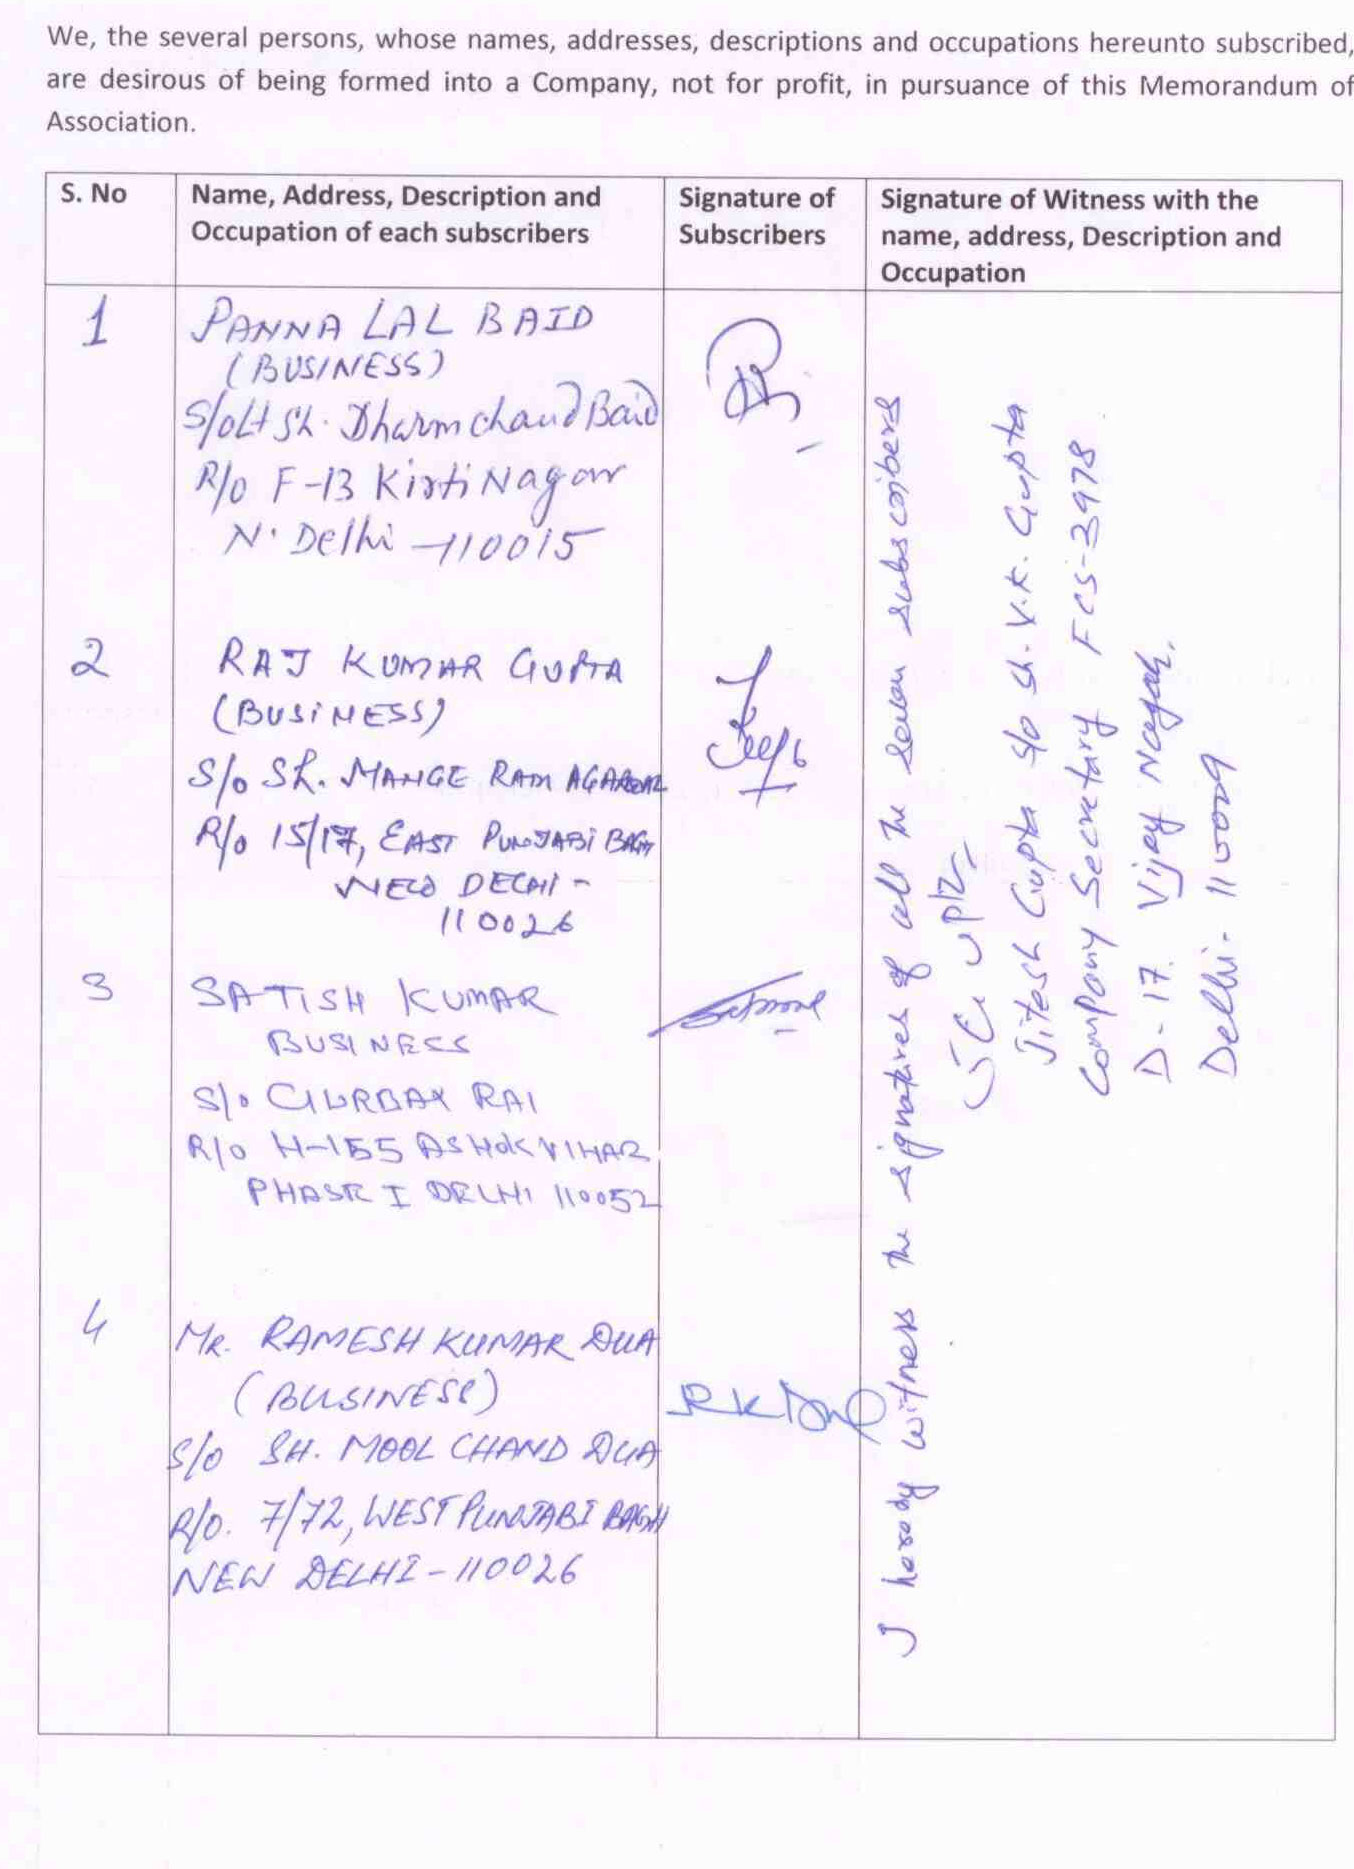 We, the several persons, whose names, addresses, descriptions and occupations hereunto subscribed,
are desirous of being formed into a Company, not for profit, in pursuance of this Memorandum of
Association.
S. No
Name, Address, Description and
Occupation of each subscribers
Signature of
Subscribers
Signature of Witness with the
name, address, Description and
Occupation
1
PANNA LAL BAID
(BUSINESS)
S/o Lt Sh. Dharm chand Baid
R/o F-13 Kirti Nagar
N. Delhi - 110015
2
RAJ KUMAR GUPTA
(BUSINESS)
S/o Sh. MANGE RAM AGARWAL
R/o 15/17, EAST PUNJABI BAGH
NEW DELHI -
110026
3
SATISH KUMAR
BUSINESS
S/o GURBAX RAI
R/o H-155 ASHOK VIHAR
PHASE I DELHI 110052
4
MR. RAMESH KUMAR DUA
(BUSINESS)
S/o SH. MOOL CHAND DUA
R/o. 7/72, WEST PUNJABI BAGH
NEW DELHI - 110026
R K Dua
I hereby witness the signatures of all the seven subscribers
Jitesh Gupta S/o Sh. V.K. Gupta
Company Secretary FCS-3978
D-17. Vijay Nagar.
Delhi- 110009